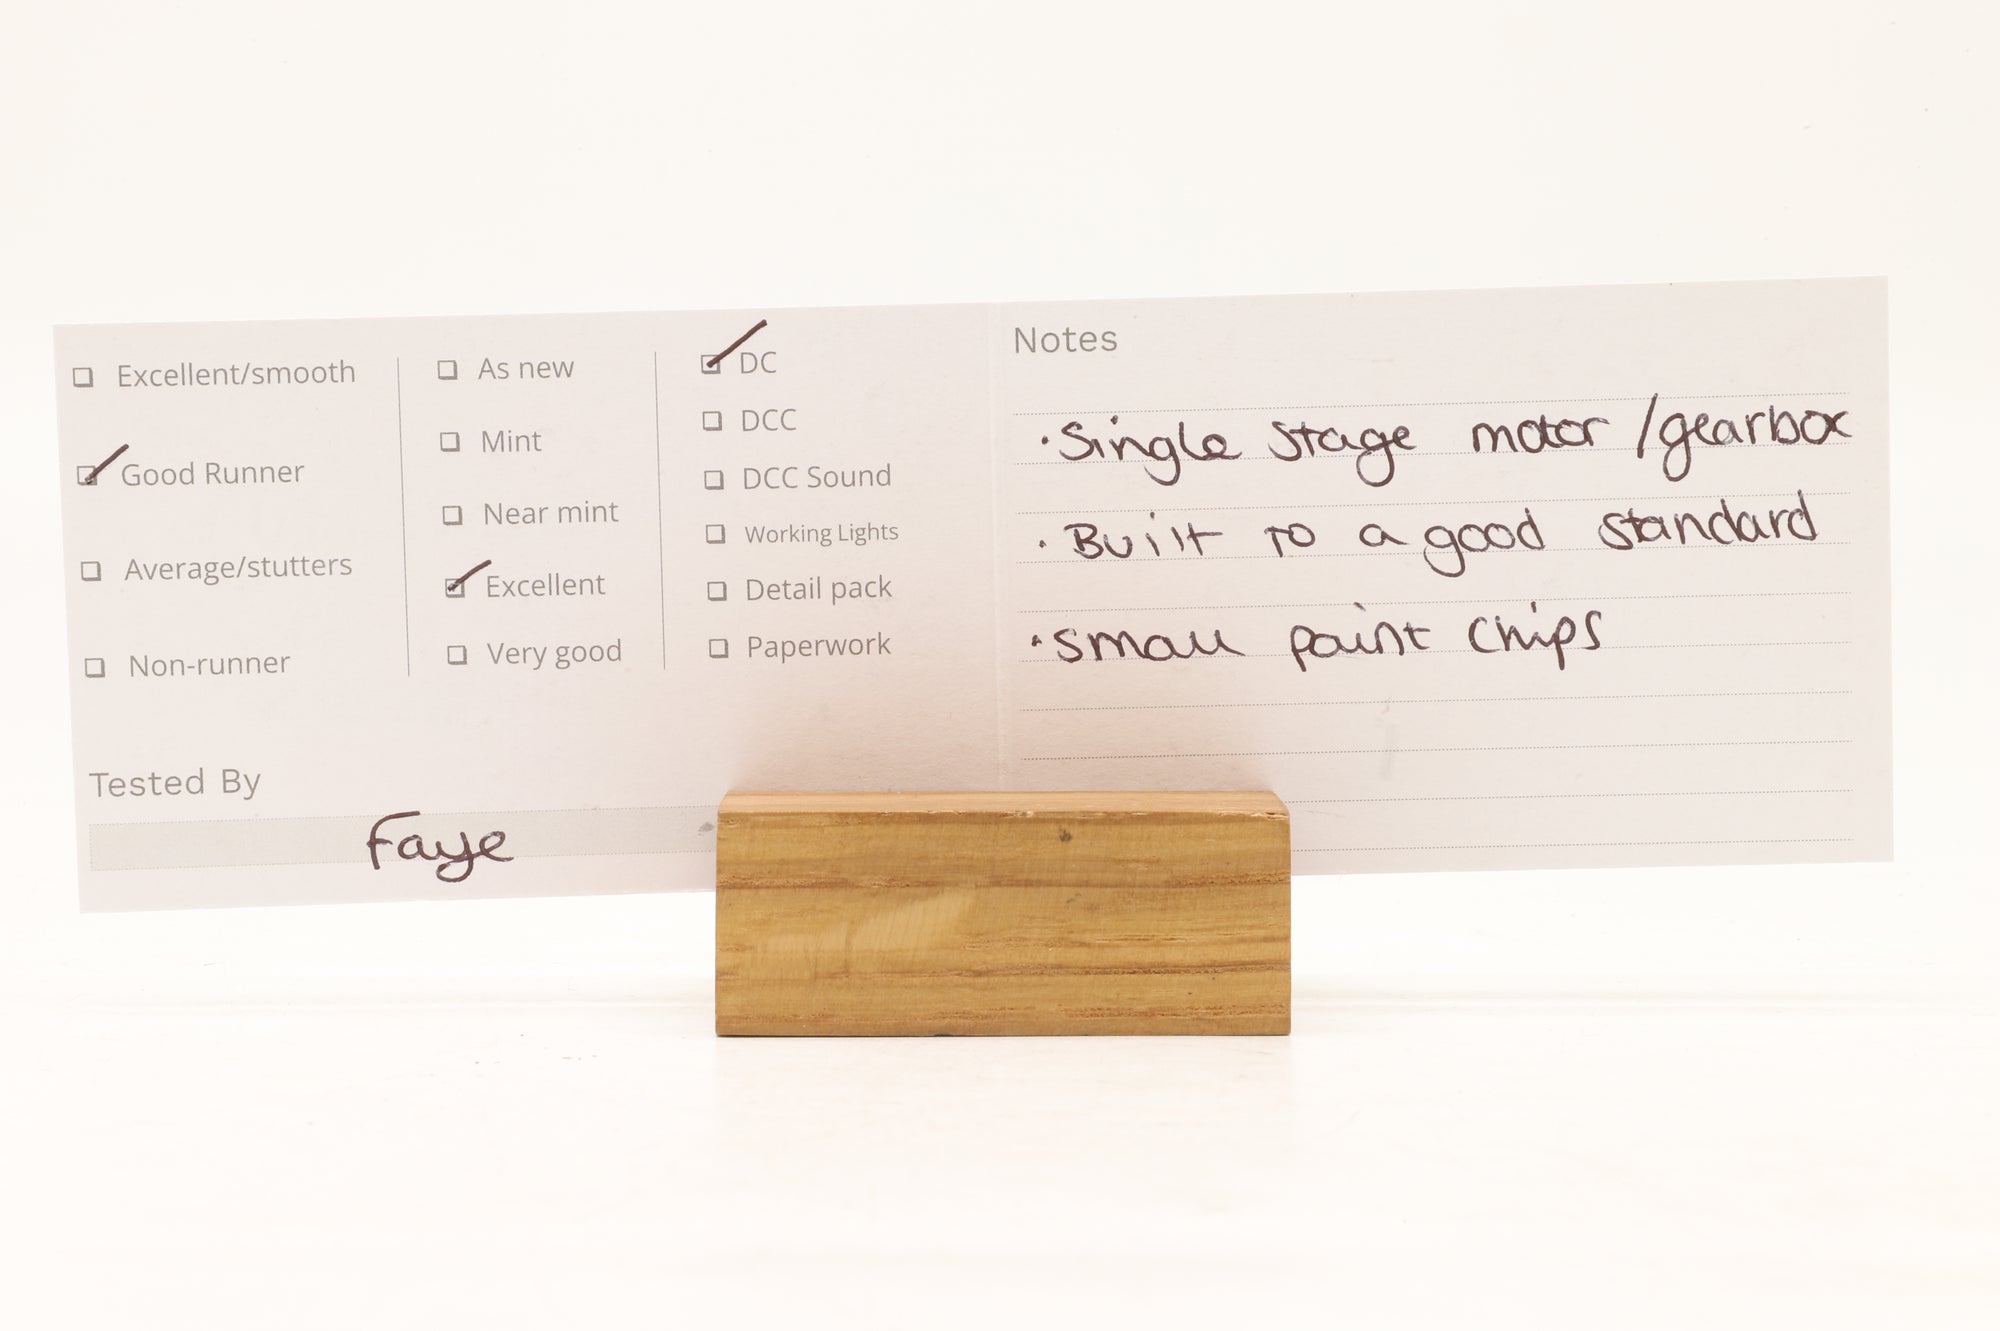 Excellent/smooth
Good Runner
Average/stutters
Non-runner
As new
Mint
Near mint
Excellent
Very good
DC
DCC
DCC Sound
Working Lights
Detail pack
Paperwork
Tested By
Faye
Notes
·Single stage motor/gearbox
·Built to a good standard
·small paint chips